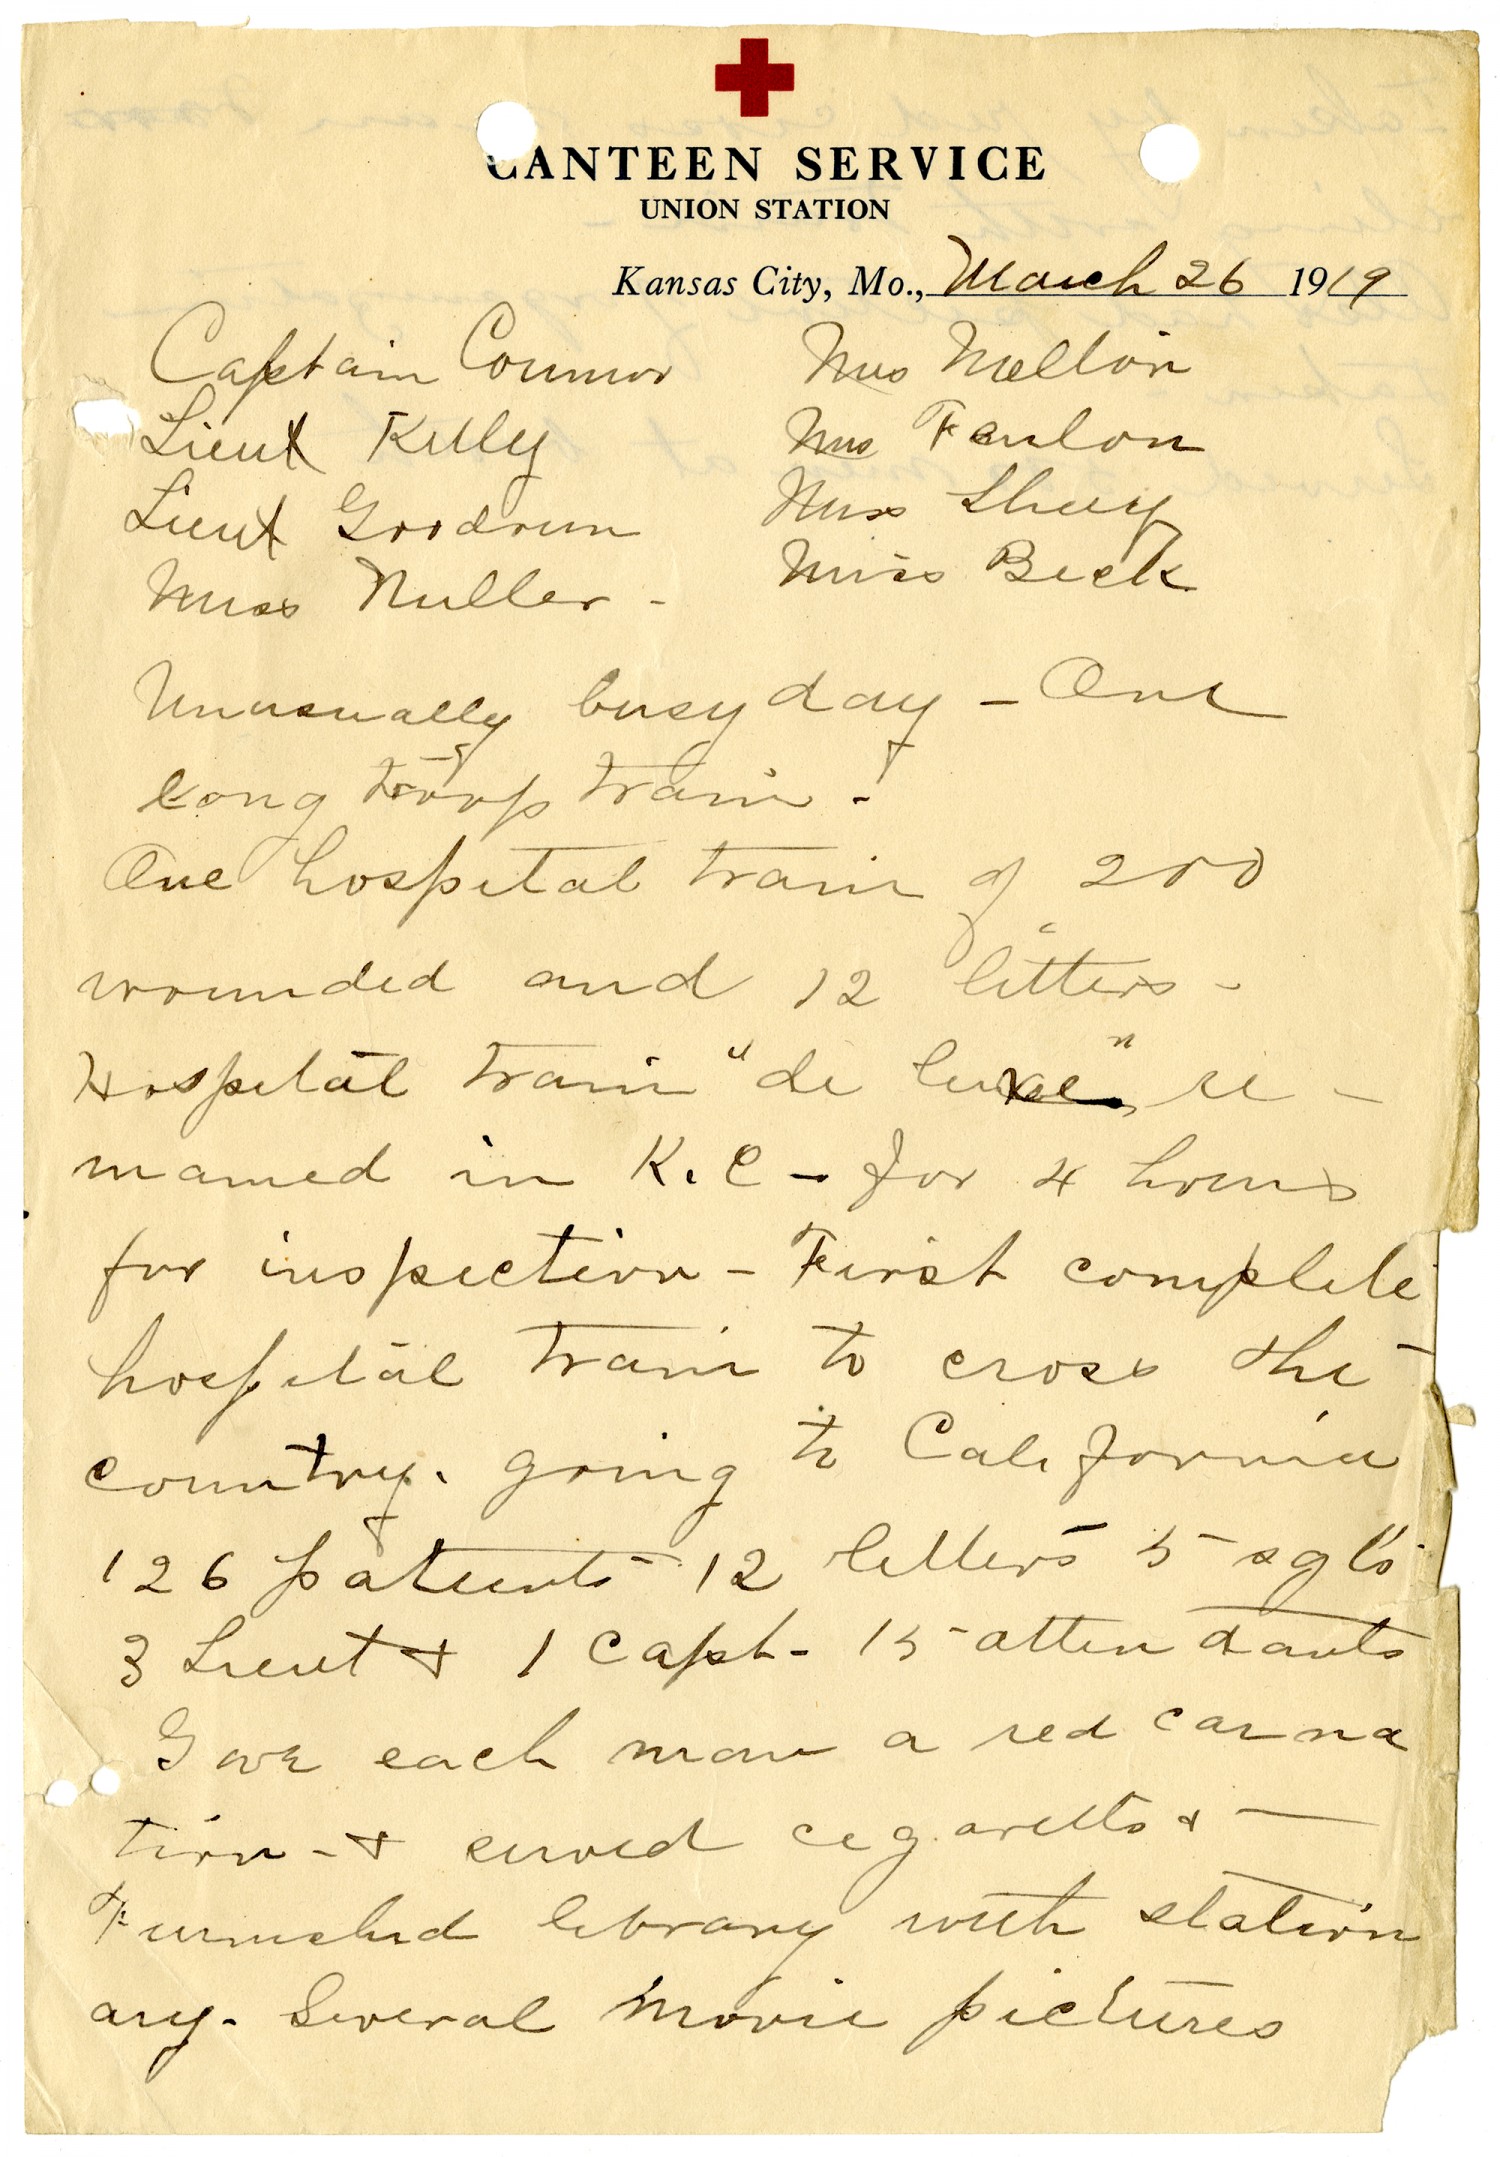 CANTEEN SERVICE
UNION STATION
Kansas City, Mo., March 26 1919
Captain Connor Mrs Mellon
Lieut Kelly Mrs Fenlon
Lieut Goodrum Miss
Miss Muller - Miss Beek
Unusually busy day - One
long troop train -
One hospital train of 200
wounded and 12 litters -
Hospital train "de luxe" re -
mained in K.C - for 4 hours
for inspection - First complete
hospital train to cross the
country. going to California
126 patients 12 litters 5 sgts
3 Lieut & 1 Capt - 15 attendants
Gave each man a red carna
tion - & served cigaretts &
Furnished library with station
ary. Several movie pictures